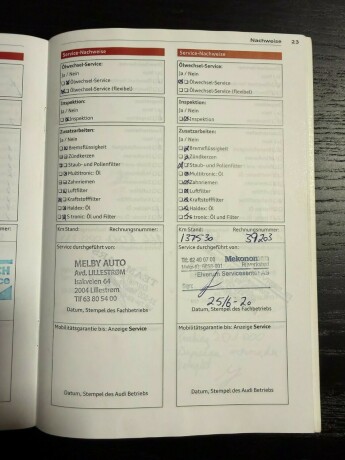 Nachweise 23
Service-Nachweise
Ölwechsel-Service:
Ja / Nein
Ölwechsel-Service
Ölwechsel-Service (flexibel)
Inspektion:
Ja / Nein
Inspektion
Zusatzarbeiten:
Ja / Nein
Bremsflüssigkeit
Zündkerzen
Staub- und Pollenfilter
Multitronic: Öl
Zahnriemen
Luftfilter
Kraftstofffilter
Haldex: Öl
S tronic: Öl und Filter
Km Stand: Rechnungsnummer:
Service durchgeführt von:
MELBY AUTO
Avd. LILLESTRØM
Isakveien 44
2004 Lillestrøm
Tlf 63 80 54 00
Datum, Stempel des Fachbetriebs
Mobilitätsgarantie bis: Anzeige Service
Datum, Stempel des Audi Betriebs
Service-Nachweise
Ölwechsel-Service:
Ja / Nein
Ölwechsel-Service
Ölwechsel-Service (flexibel)
Inspektion:
Ja / Nein
Inspektion
Zusatzarbeiten:
Ja / Nein
Bremsflüssigkeit
Zündkerzen
Staub- und Pollenfilter
Multitronic: Öl
Zahnriemen
Luftfilter
Kraftstofffilter
Haldex: Öl
S tronic: Öl und Filter
Km Stand: Rechnungsnummer:
137530 39203
Service durchgeführt von:
Mekonomen
Elverum Servicesenter AS
25/6-20
Datum, Stempel des Fachbetriebs
Mobilitätsgarantie bis: Anzeige Service
Datum, Stempel des Audi Betriebs